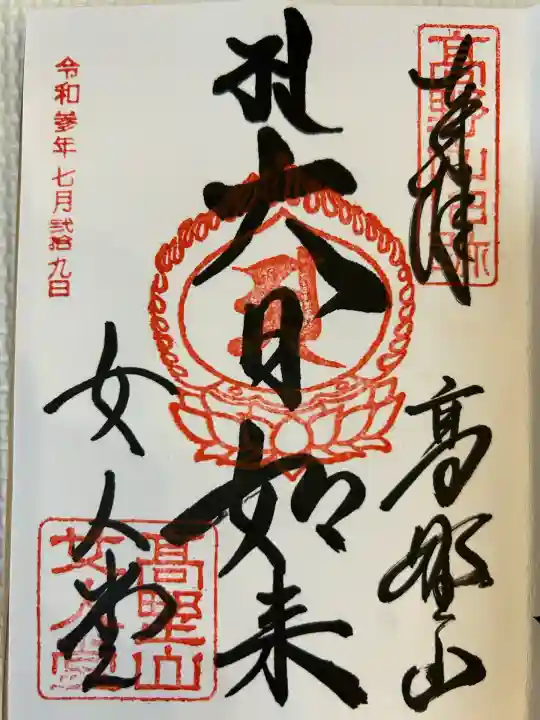 奉拝
高野山
大日如来
女人堂
令和参年七月弐拾九日
高野山
女人堂